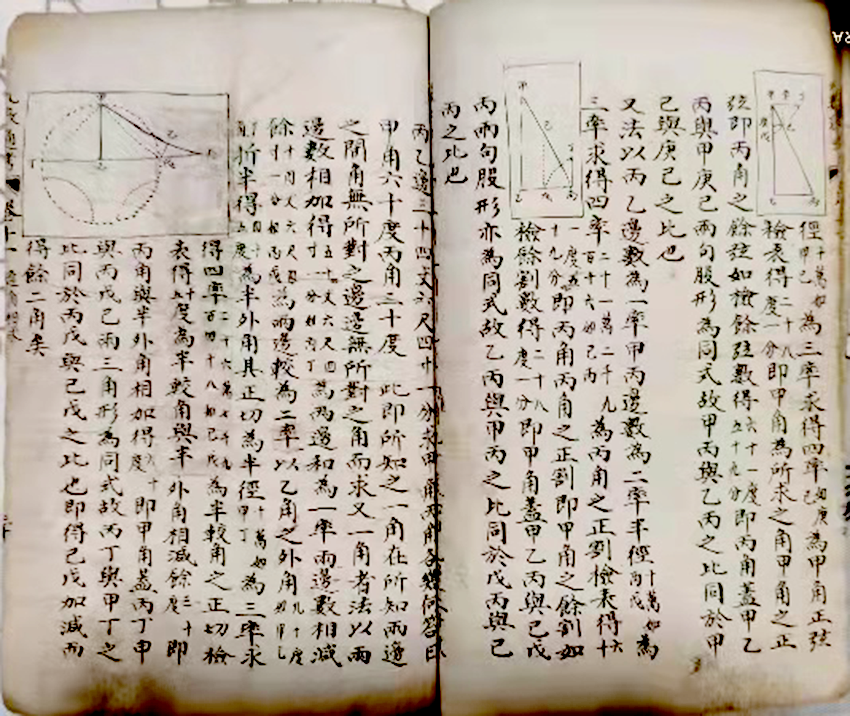 徑十萬如甲己為三率求得四率己庚為甲角正弦
檢表得二十八度一分即甲角為所求之角甲角之正
弦即丙角之餘弦如檢餘弦數得六十一度五十九分即丙角蓋甲乙
丙與甲庚己兩句股形為同式故甲丙與乙丙之比同於甲
己與庚己之比也
又法以丙乙邊數為一率甲丙邊數為二率半徑十萬如丙戊為
三率求得四率二十一萬二千九百十六如己丙為丙角之正割檢表得六十
一度五十九分即丙角丙角之正割即甲角之餘割如
檢餘割數得二十八度一分即甲角蓋甲乙丙與己戊
丙兩句股形亦為同式故乙丙與甲丙之比同於戊丙與己
丙之比也
丙乙邊三十四丈六尺四寸一分求甲角丙角各幾何答曰
甲角六十度丙角三十度 此即所知之一角在所知兩邊
之間角無所對之邊邊無所對之角而求又一角者法以兩
邊數相加得五十四丈六尺四寸一分為兩邊和為一率兩邊數相減
餘十四丈六尺四寸一分為兩邊較為二率以乙角之外角九十度
折半得四十五度為半外角其正切為半徑十萬如甲丁為三率求
得四率二萬六千七百四十八如己戊為半較角之正切檢
表得十五度為半較角與半外角相減餘三十度即
丙角與半外角相加得六十度即甲角蓋丙丁甲
與丙戊己兩三角形為同式故丙丁與甲丁之
比同於丙戊與己戊之比也即得己戊加減而
得餘二角矣